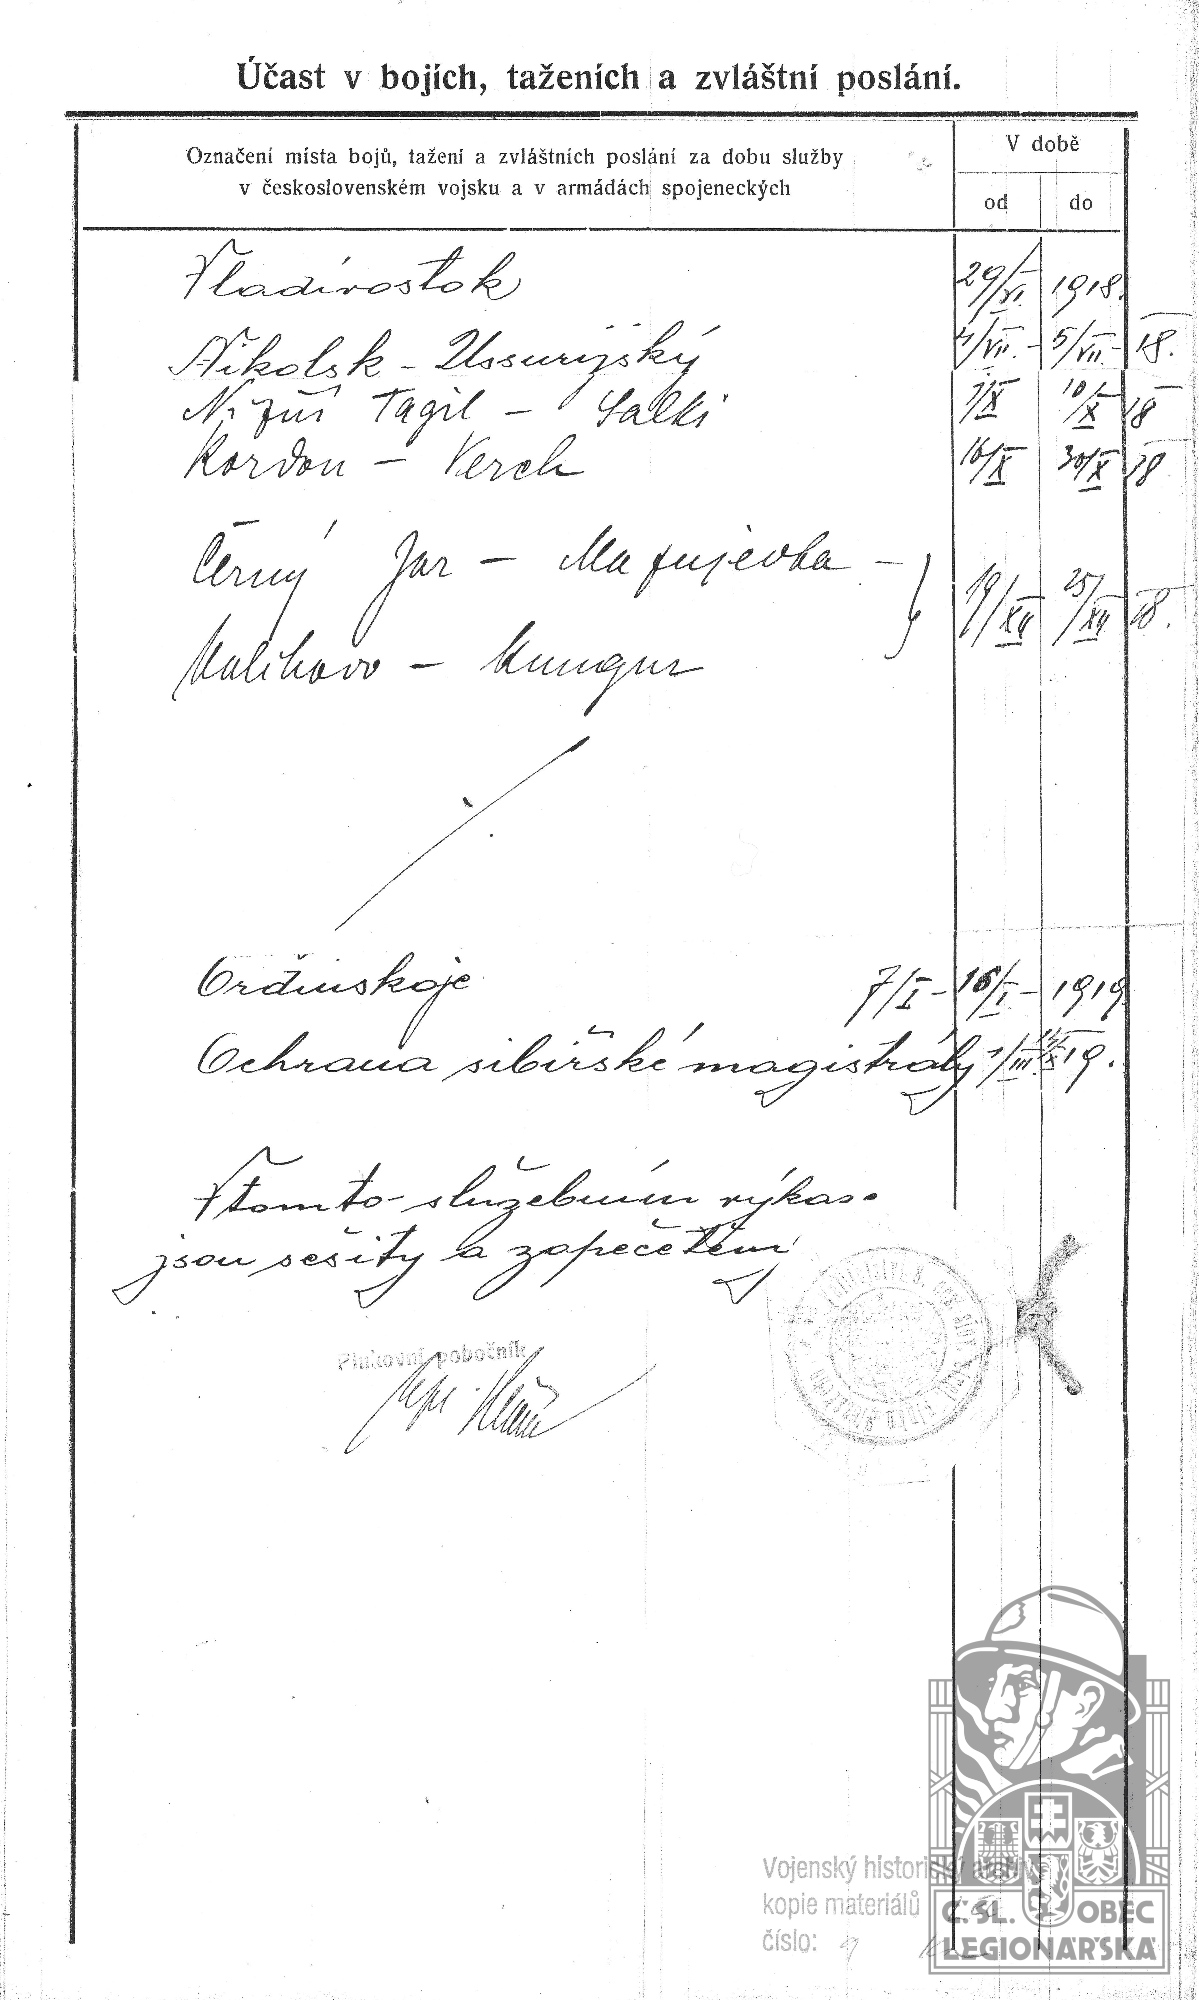 Účast v bojích, taženích a zvláštní poslání.
Označení místa bojů, tažení a zvláštních poslání za dobu služby
v československém vojsku a v armádách spojeneckých
V době
od do
Vladivostok 29/VI. 1918.
Nikolsk - Ussurijský 4/VII. - 5/VII. - 18.
Nižní Tagil - Salki 7/X 10/X 18
Kordon - Verch 16/X 30/X 18
Černý Jar - Mafujevka -
19/XII 25/XII 18.
Kulikovo - Kungur
Ordinskoje 7/I - 16/I. - 1919.
Ochrana sibiřské magistrály 1/III. 19.
V tomto služebním výkas.
jsou sešity a zapečetěny
Plukovní pobočník
Vojenský historický archiv
kopie materiálů
číslo:
Č.SL. OBEC
LEGIONÁŘSKÁ